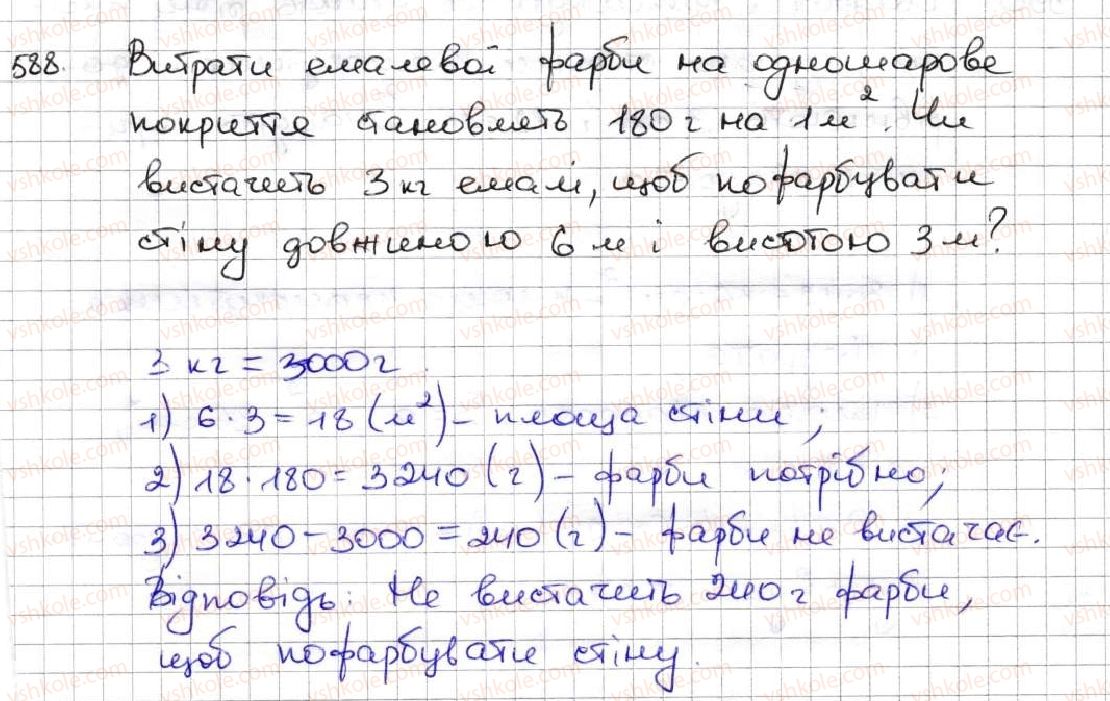 588. Витрати емалевої фарби на одношарове
покриття становлять 180 г на 1 м². Чи
вистачить 3 кг емалі, щоб пофарбувати
стіну довжиною 6 м і висотою 3 м?
3 кг = 3000 г.
1) 6 · 3 = 18 (м²) – площа стіни;
2) 18 · 180 = 3240 (г) – фарби потрібно;
3) 3240 – 3000 = 240 (г) – фарби не вистачає.
Відповідь: Не вистачить 240 г фарби,
щоб пофарбувати стіну.